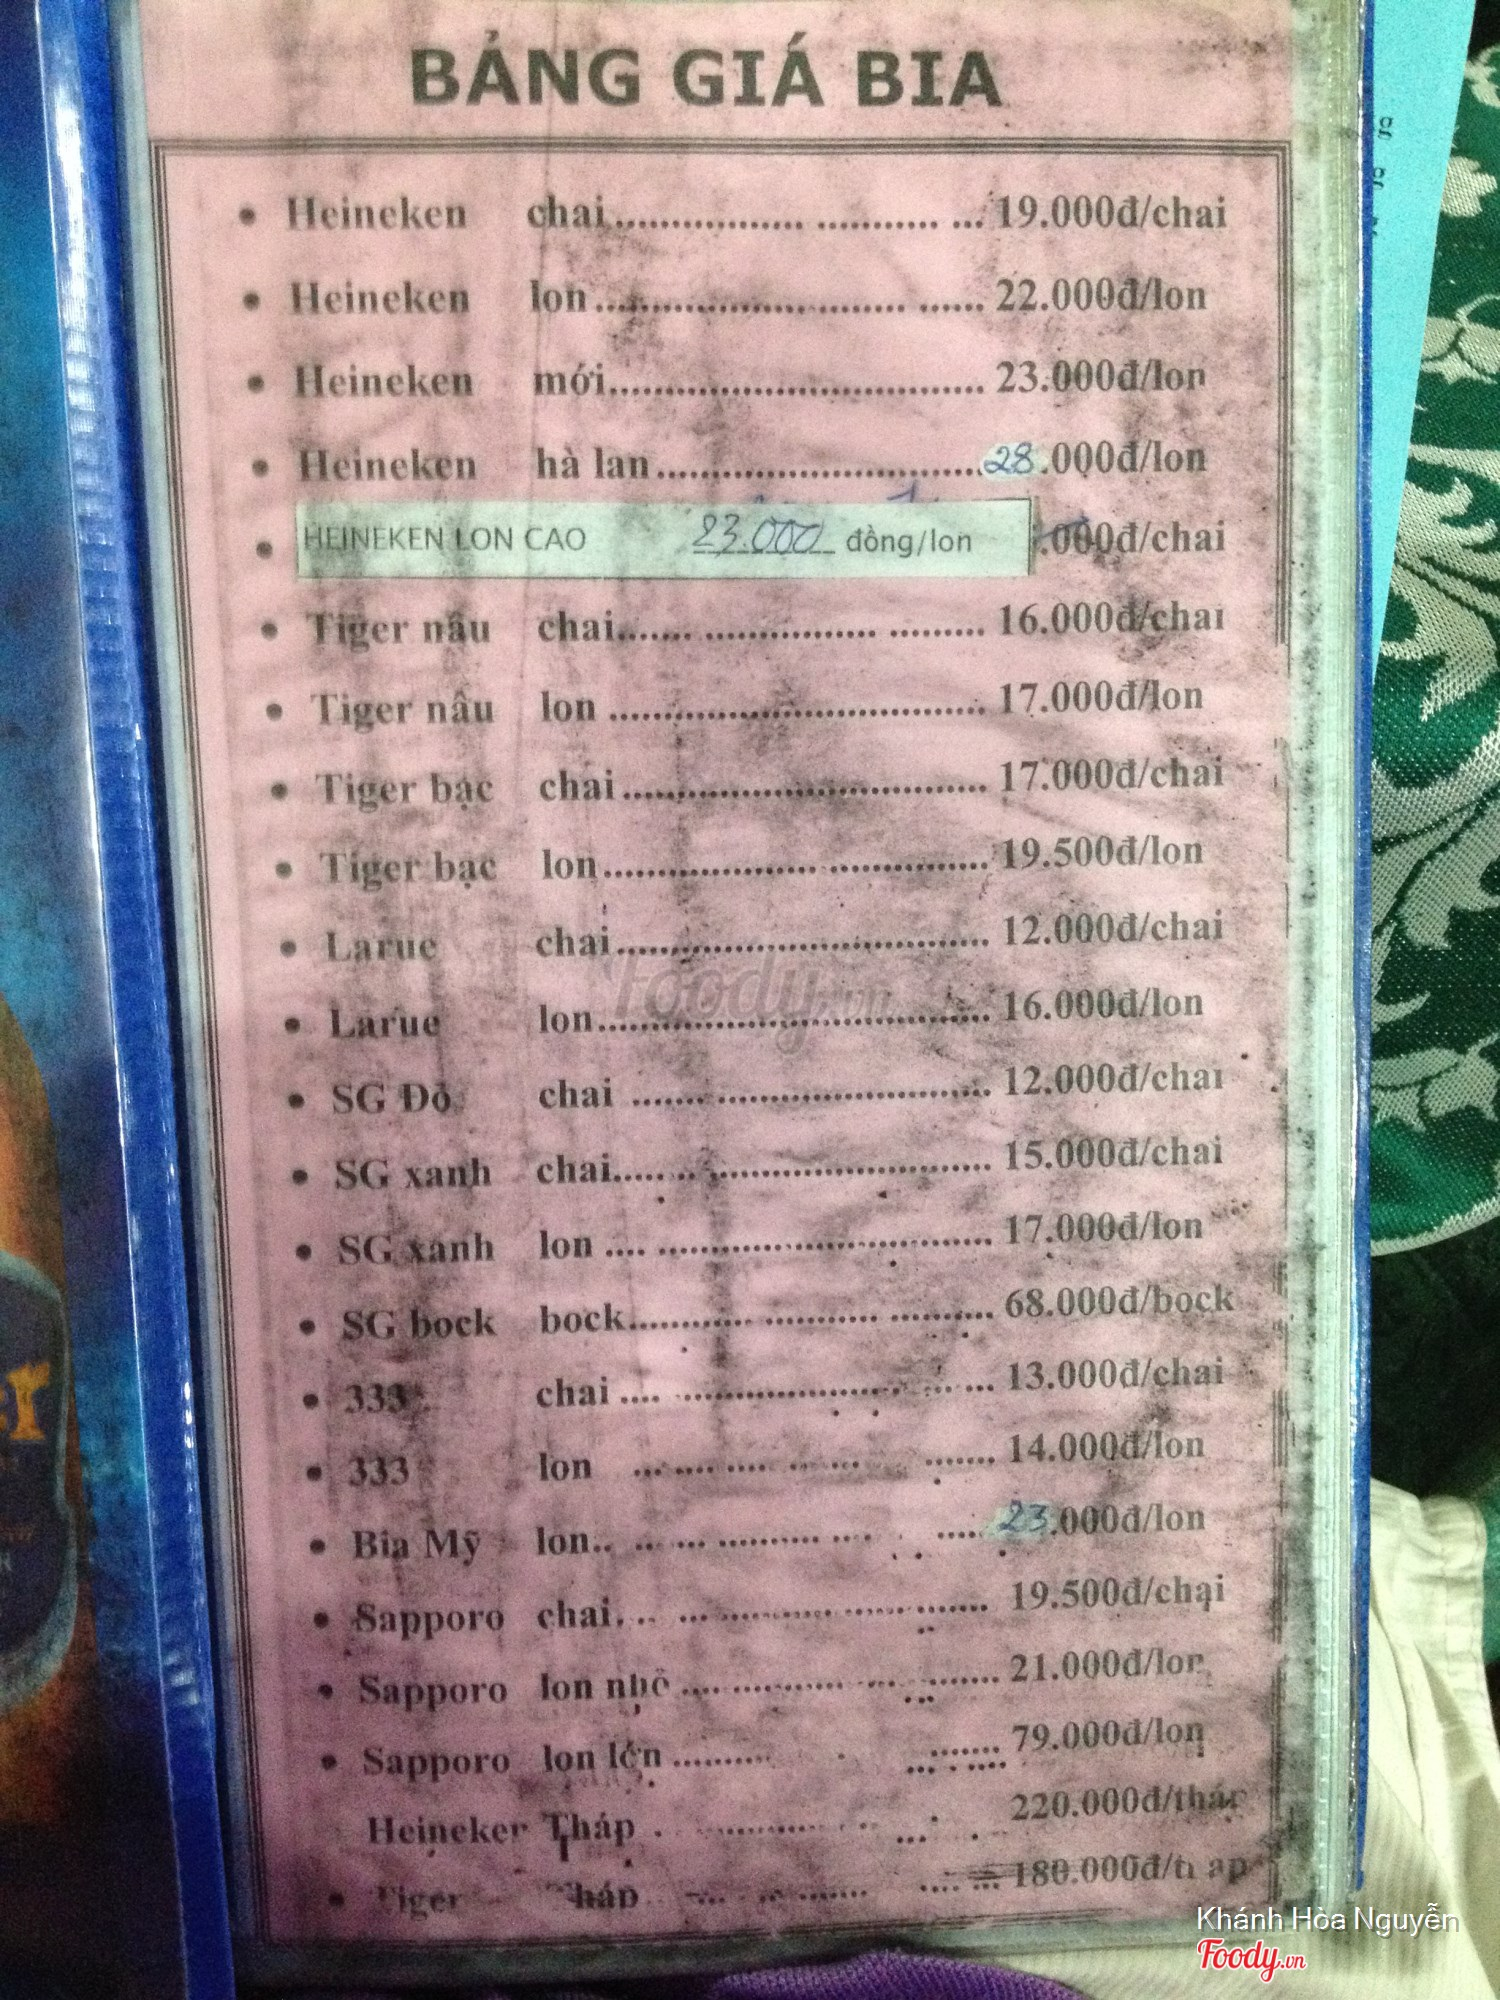 BẢNG GIÁ BIA
• Heineken chai................. ........... ... 19.000đ/chai
• Heineken lon............................ ...... 22.000đ/lon
• Heineken mới.................................. 23.000đ/lon
• Heineken hà lan..............................28.000đ/lon
• HEINEKEN LON CAO 23.000 đồng/lon .000đ/chai
• Tiger nâu chai....... ................ ......... 16.000đ/chai
• Tiger nâu lon .................................. 17.000đ/lon
• Tiger bạc chai ................................. 17.000đ/chai
• Tiger bạc lon................... ............... 19.500đ/lon
• Larue chai.................................. 12.000đ/chai
• Larue lon.................................... 16.000đ/lon
• SG Đỏ chai ....... ......................... 12.000đ/chai
• SG xanh chai....... .......................... 15.000đ/chai
• SG xanh lon .... .............................. 17.000đ/lon
• SG bock bock........... .......... .......... 68.000đ/bock
• 333 chai .... .................... ... ... 13.000đ/chai
• 333 lon ... .... .... .. ... ....... 14.000đ/lon
• Bia Mỹ lon.. .. ... ......... ... . .....23.000đ/lon
• Sapporo chai. .. ... ............ ..... ....... 19.500đ/chai
• Sapporo lon nhỏ .... .......... ... ....... 21.000đ/lon
• Sapporo lon lớn ......... . ....... 79.000đ/lon
Heineken Tháp . ............ .. ... 220.000đ/tháp
• Tiger Tháp ... .. ....... .... ... 180.000đ/tháp
er
Foody.vn
Khánh Hòa Nguyễn
Foody.vn